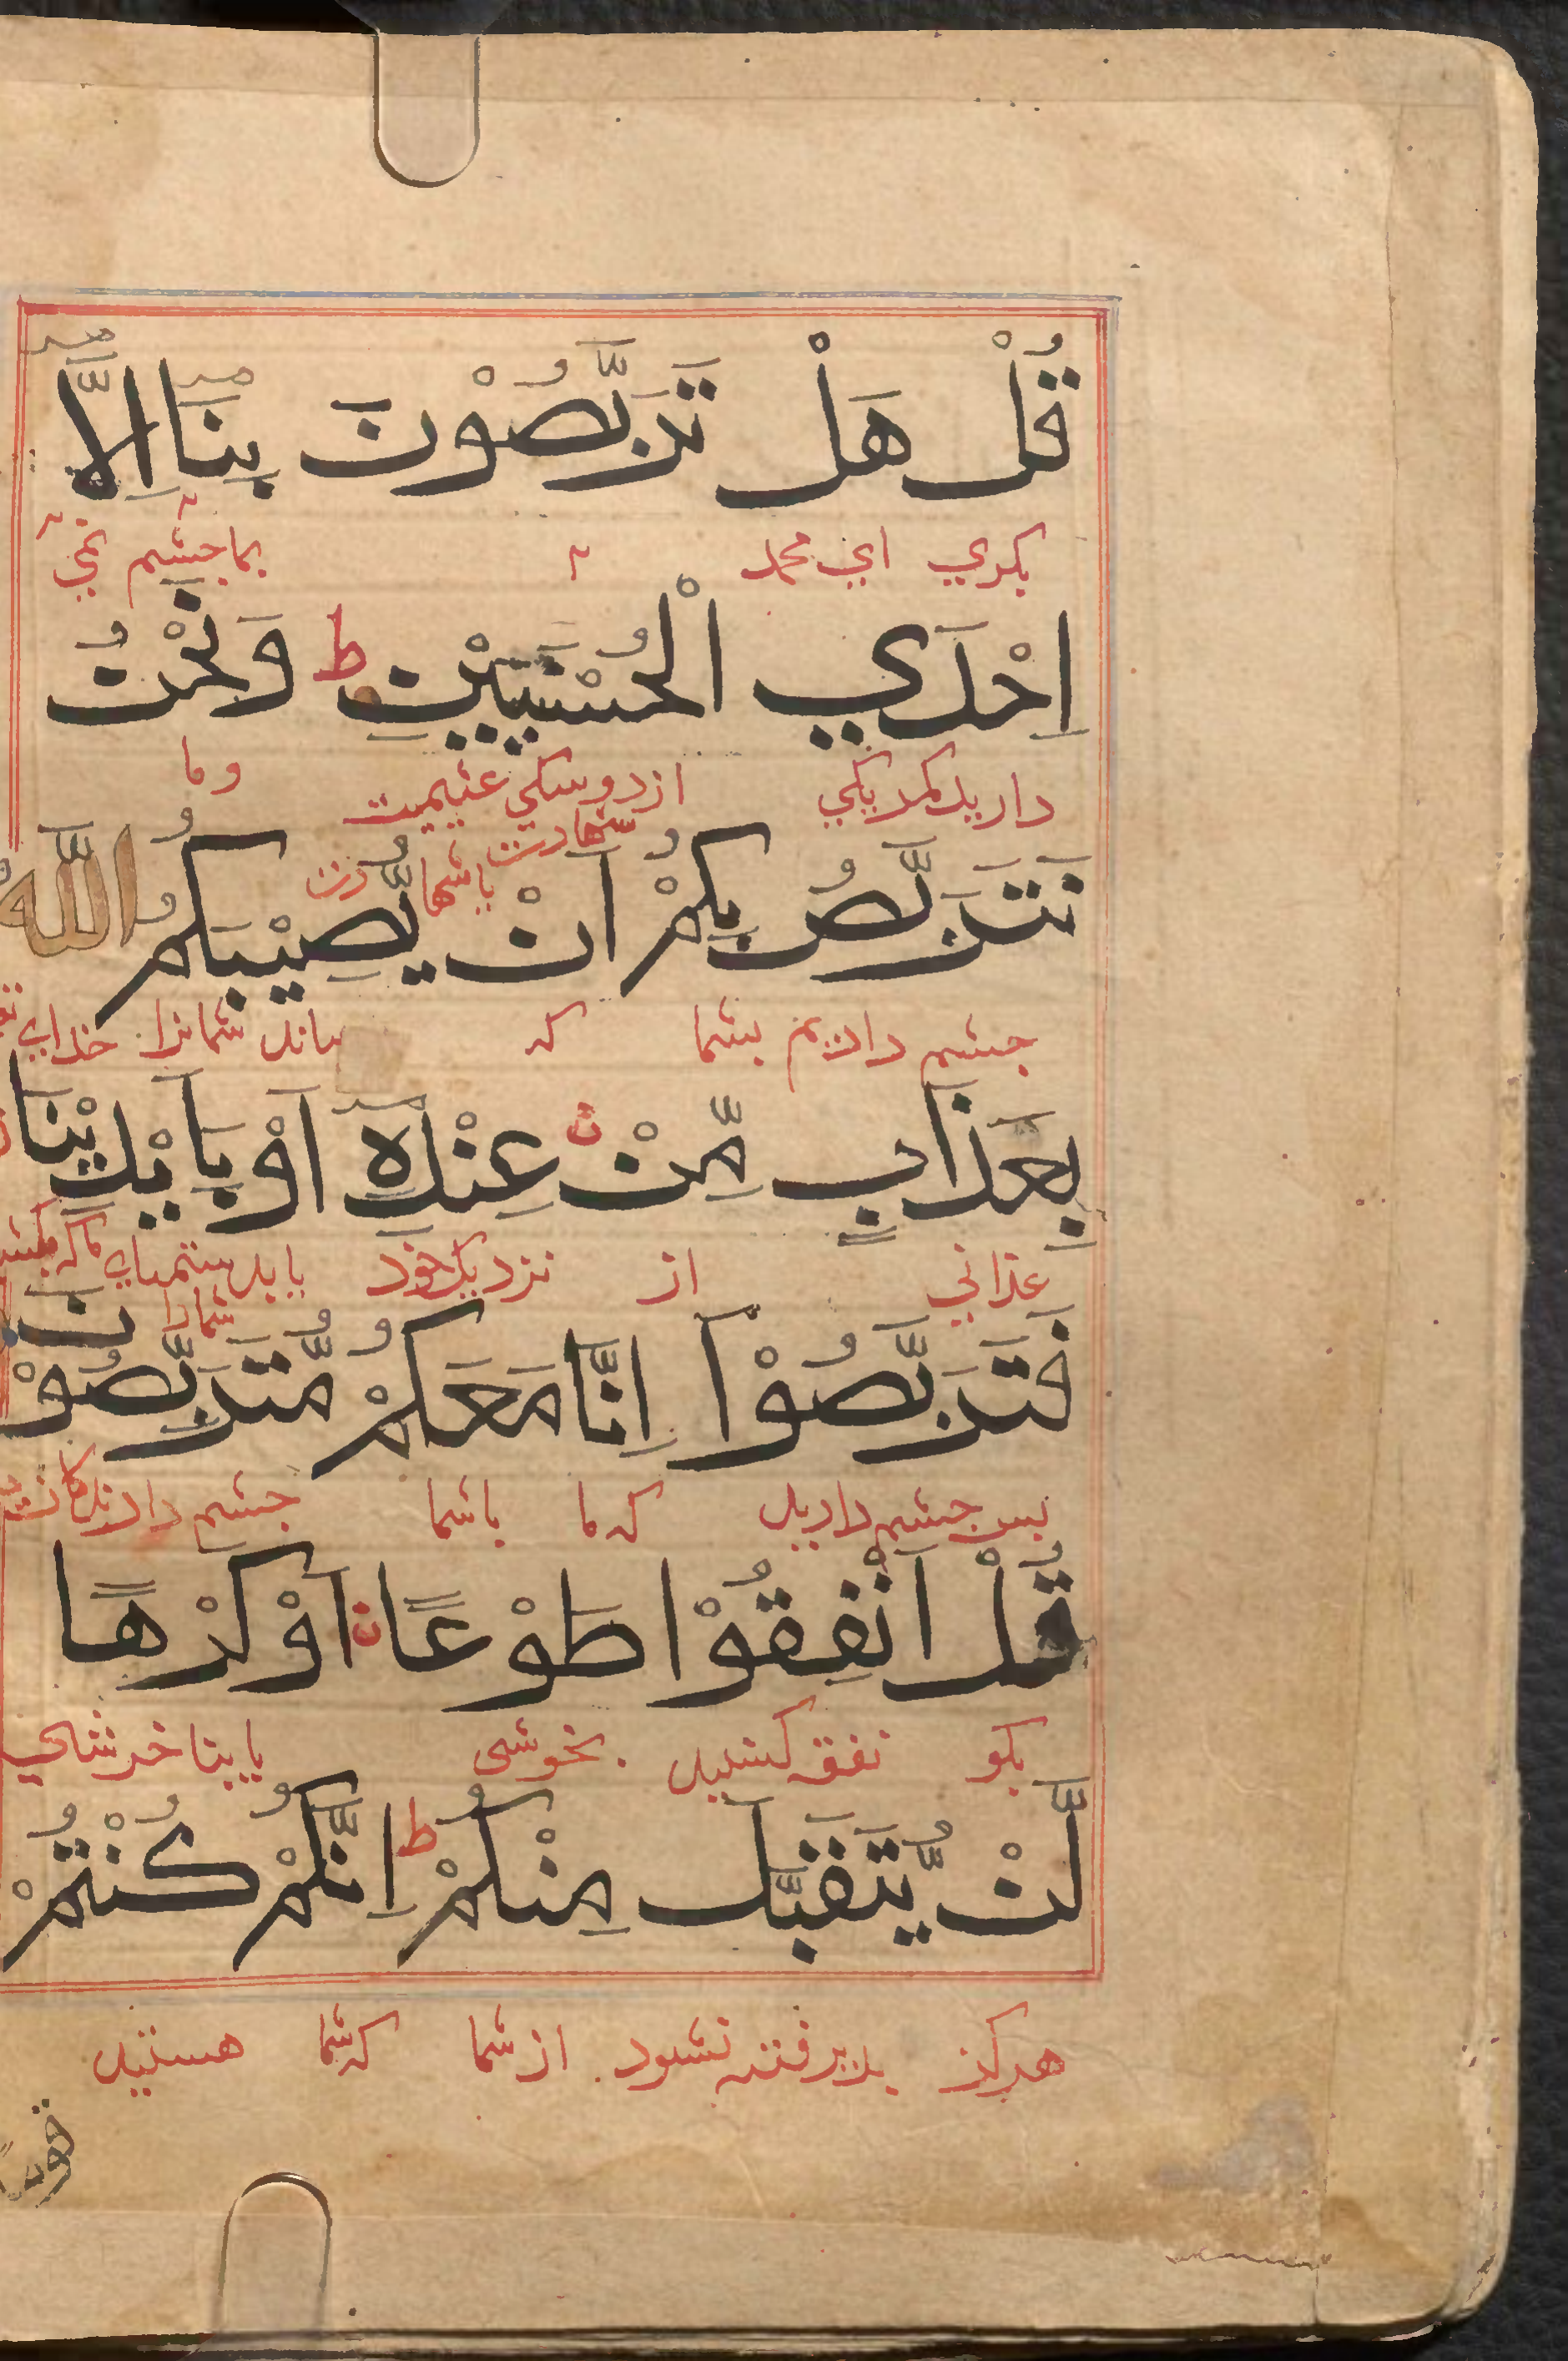 قُلْ هَلْ تَرَبَّصُوْنَ بِنَآ اِلَّآ
بکوي اي محمد بما جشم نمي
اِحْدَي الْحُسْنَيَيْنِ ط وَنَحْنُ
داريد مکر يکي از دو نيکي غنيمت وما
شهادت
نَتَرَبَّصُ بِكُمْ اَنْ يُّصِيْبَكُمُ اللّٰهُ
باشما
جشم داريم بشما که ساند شمانرا خداي
بِعَذَابٍ مِّنْ عِنْدِهٖٓ اَوْ بِاَيْدِيْنَا
عذابي از نزديک خود يا بدستهاي ما که
شمارا
فَتَرَبَّصُوْٓا اِنَّا مَعَكُمْ مُّتَرَبِّصُوْنَ
بس جشم داريد که ما باشما جشم دارندکان
قُلْ اَنْفِقُوْا طَوْعًا اَوْ كَرْهًا
بکو نفقه کنيد بخوشي يا بنا خوشي
لَّنْ يُّتَقَبَّلَ مِنْكُمْ ط اِنَّكُمْ كُنْتُمْ
هرکز بذيرفته نشود از شما که شما هستيد
قومًا